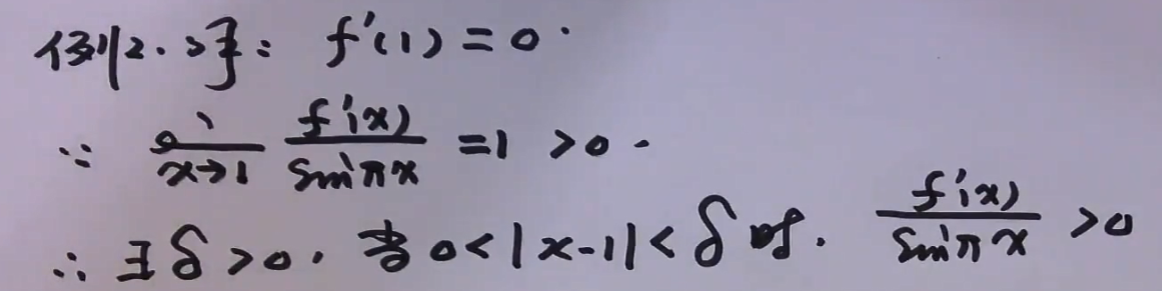 例2.解: f'(1) = 0.
∵ lim x→1 f'(x)/sinπx = 1 > 0.
∴ ∃ δ > 0, 当 0 < |x-1| < δ 时, f'(x)/sinπx > 0